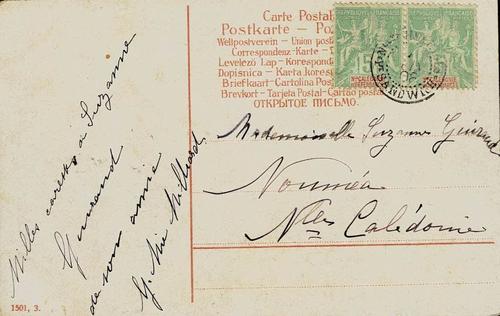 Carte Postal
Postkarte - Po
Weltpostverein - Union post
Correspondenz-Karte - D
Levelező Lap - Korespond
Dopisnica - Karta korespo
Briefkaart - Cartolina Po
Brevkort - Tarjeta Postal - Cartão posta
ОТКРЫТОЕ ПИСЬМО.
RÉPUBLIQUE FRANÇAISE
5 5
Nlle CALÉDONIE
SANDWICH
Mademoiselle Suzanne Guiraud
Nouméa
Nlles Calédonie
Milles caresses a Suzanne
Guiraud
de son amie
G. Milliard
1501, 3.